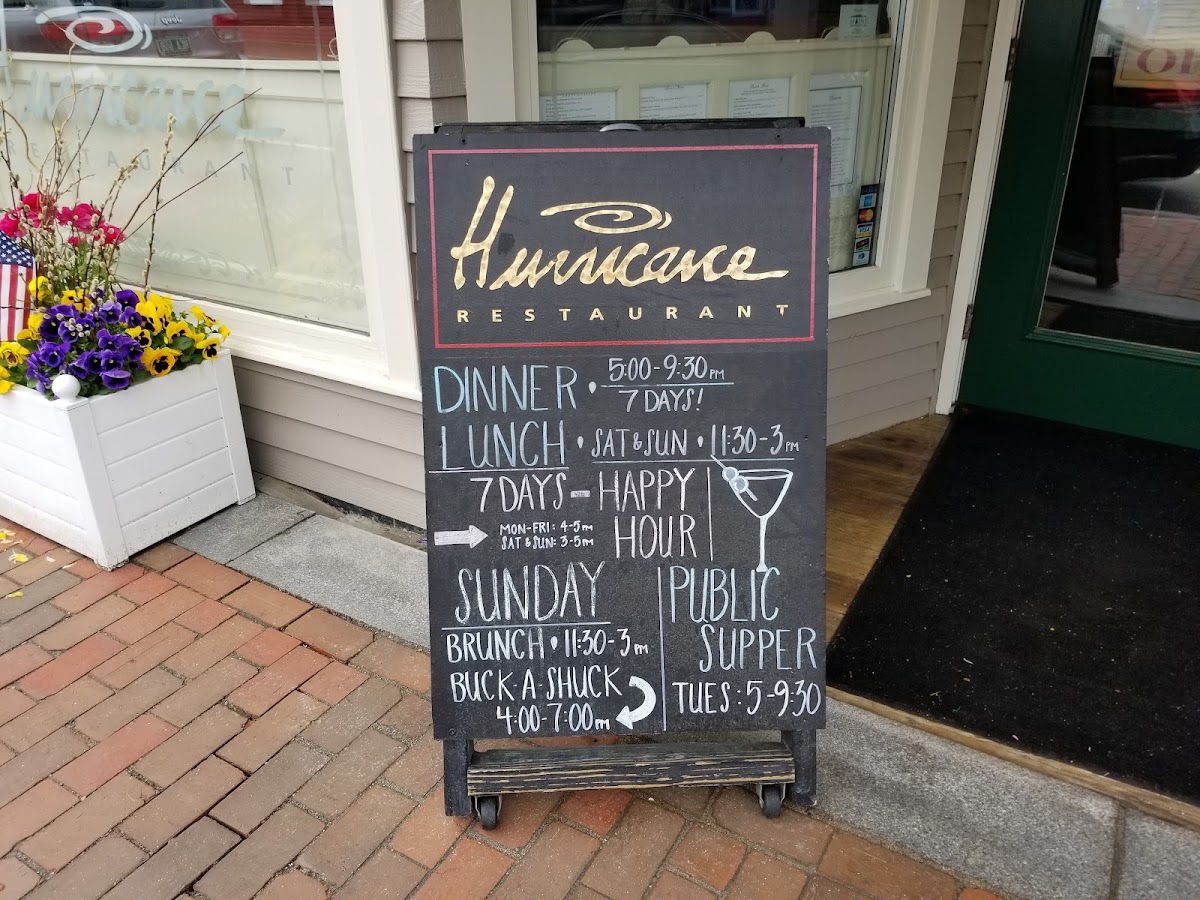 Hurricane
RESTAURANT
Hurricane
RESTAURANT
DINNER • 5:00-9:30 PM
7 DAYS!
LUNCH • SAT & SUN • 11:30-3 PM
7 DAYS - HAPPY
HOUR
MON-FRI: 4-5 PM
SAT & SUN: 3-5 PM
SUNDAY
BRUNCH • 11:30-3 PM
BUCK-A-SHUCK
4:00-7:00 PM
PUBLIC
SUPPER
TUES: 5-9:30
VISA